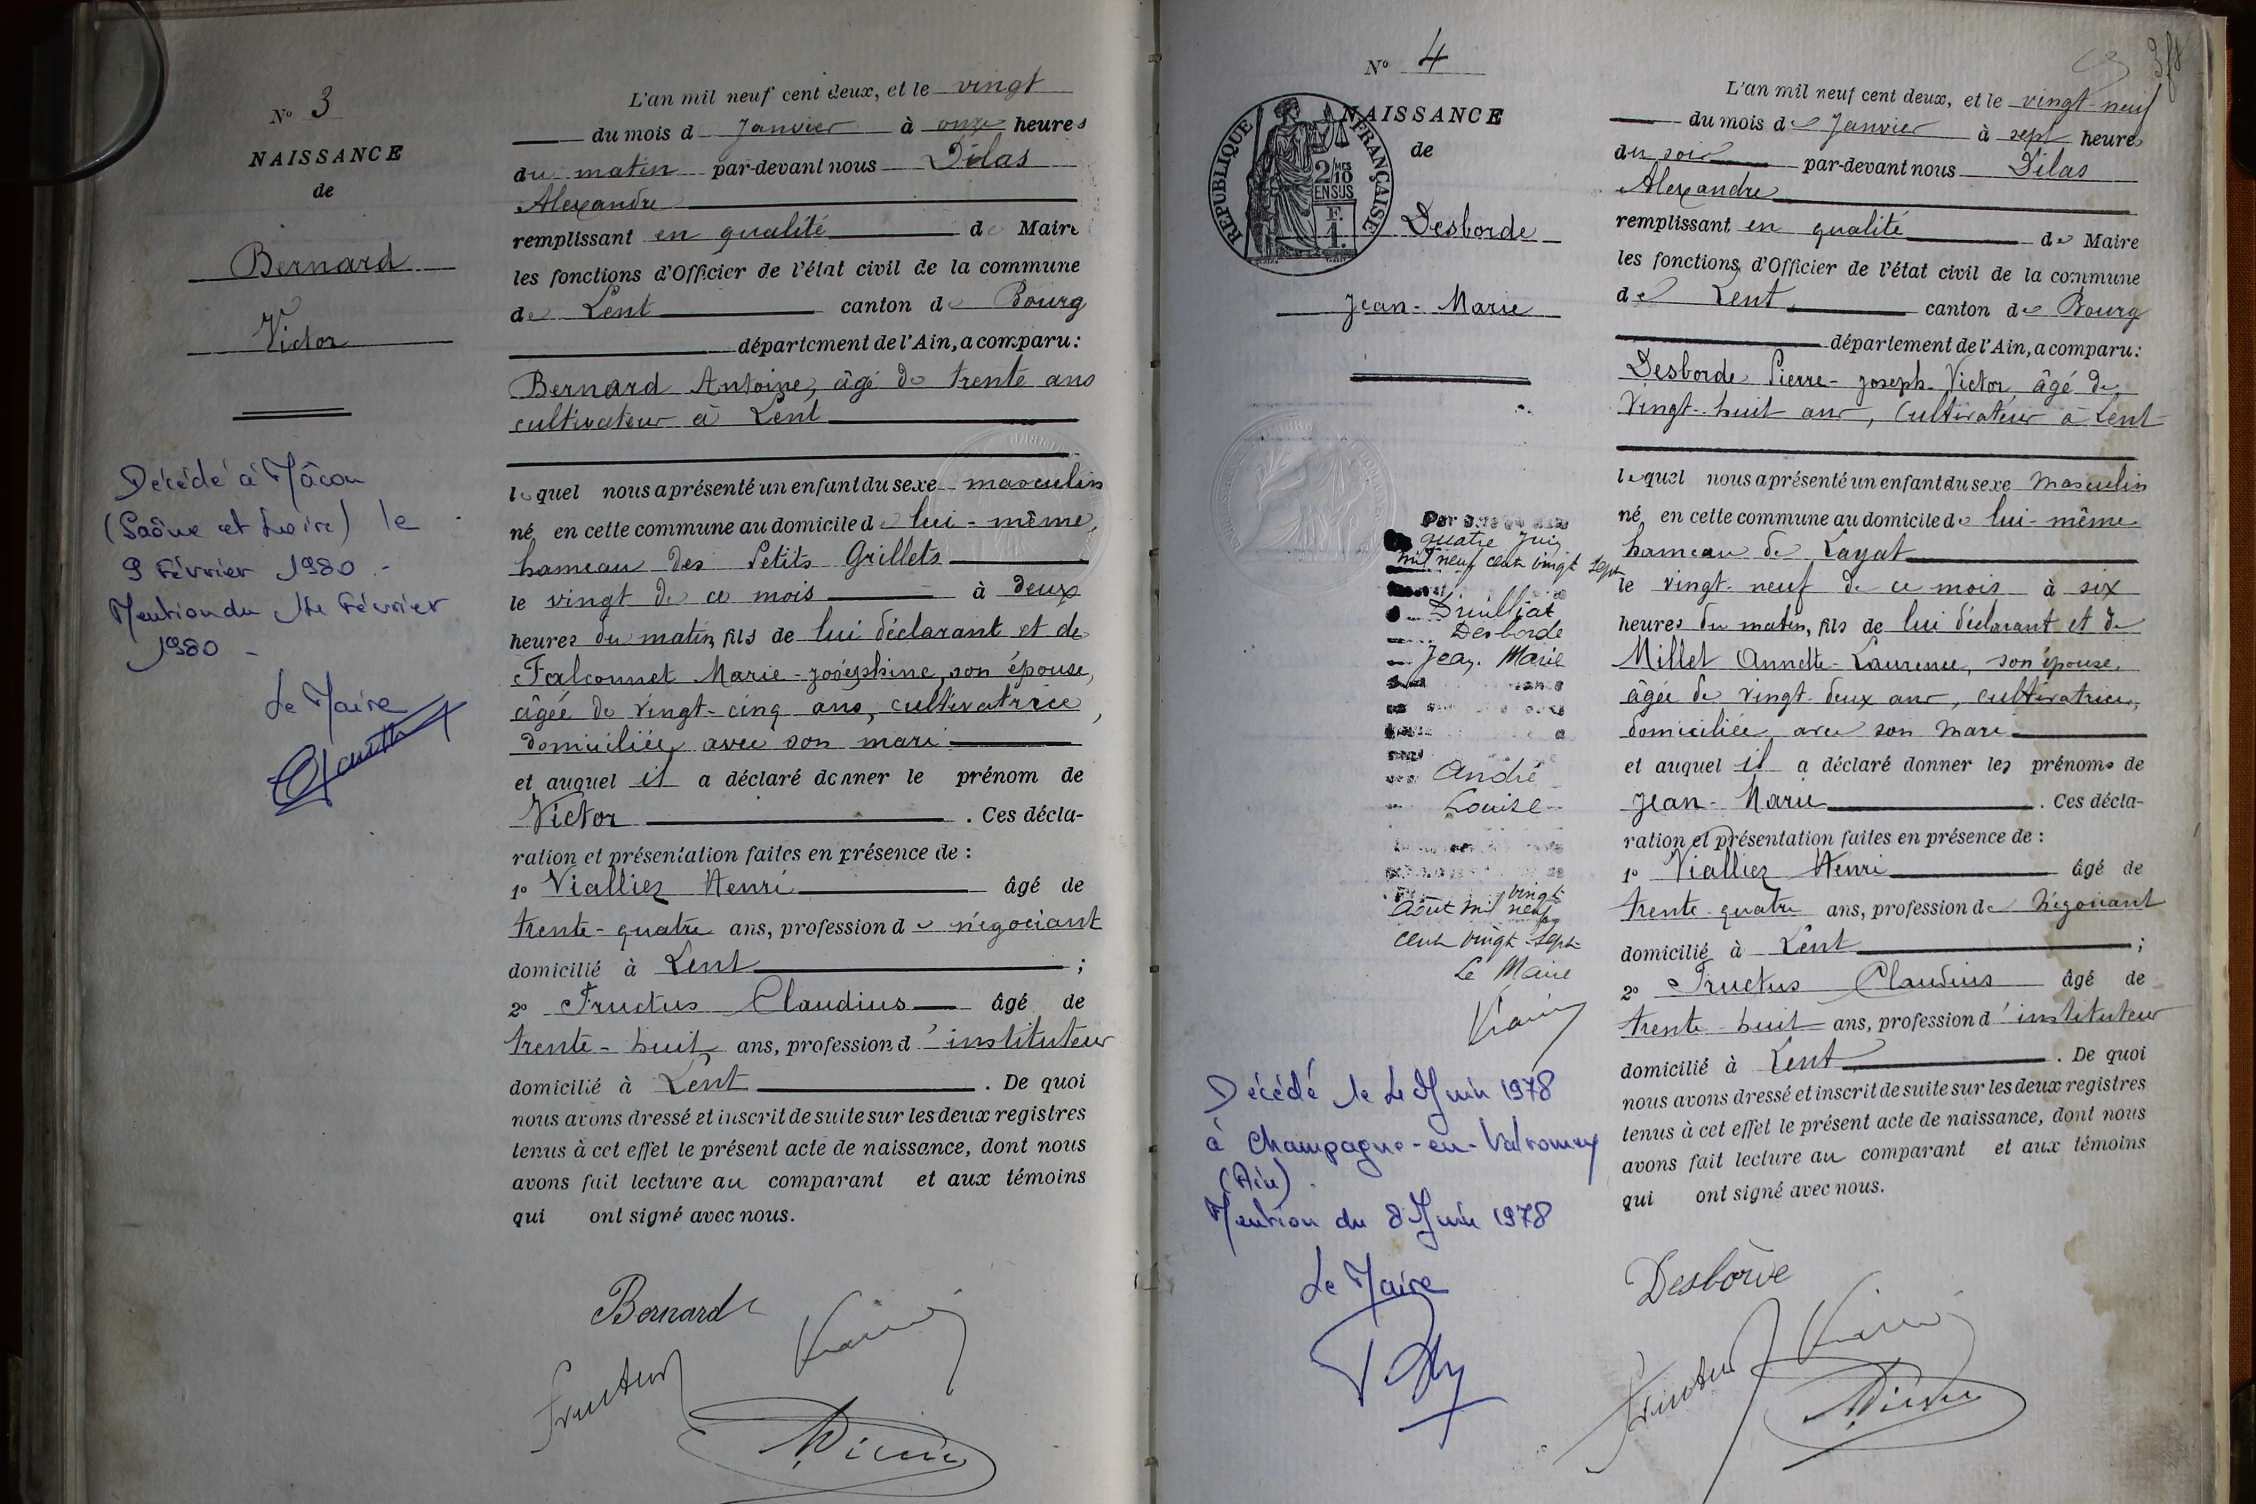 Nº 3
NAISSANCE
de
Bernard
Victor
Décédé à Mâcon
(Saône et Loire) le
9 Février 1980 -
Mention du 11 Février
1980 -
Le Maire
L'an mil neuf cent deux, et le vingt
du mois de Janvier à onze heures
du matin par-devant nous Dilas
Alexandre
remplissant en qualité de Maire
les fonctions d'Officier de l'état civil de la commune
de Lent canton de Bourg
département de l'Ain, a comparu :
Bernard Antoine, âgé de trente ans
cultivateur à Lent
lequel nous a présenté un enfant du sexe masculin
né en cette commune au domicile de lui-même,
hameau des Petits Grillets
le vingt de ce mois à deux
heures du matin, fils de lui déclarant et de
Falconnet Marie-Joséphine, son épouse,
âgée de vingt-cinq ans, cultivatrice,
domiciliée avec son mari
et auquel il a déclaré donner le prénom de
Victor . Ces décla-
ration et présentation faites en présence de :
1º Viallier Henri âgé de
trente-quatre ans, profession de négociant
domicilié à Lent ;
2º Fructus Claudius âgé de
trente-huit ans, profession d'instituteur
domicilié à Lent . De quoi
nous avons dressé et inscrit de suite sur les deux registres
tenus à cet effet le présent acte de naissance, dont nous
avons fait lecture au comparant et aux témoins
qui ont signé avec nous.
Bernard
Fructus
Nº 4
NAISSANCE
de
RÉPUBLIQUE FRANÇAISE
2/10
EN SUS
Desborde
Jean-Marie
quatre Juin
mil neuf cent vingt sept
Druillat
Desborde
Jean Marie
André
Louise
vingt
Août mil neuf
cent vingt-sept
Le Maire
Décédé le 4 Juin 1978
à Champagne-en-Valromey
(Ain).
Mention du 8 Juin 1978
Le Maire
L'an mil neuf cent deux, et le vingt-neuf
du mois de Janvier à sept heures
du soir par-devant nous Dilas
Alexandre
remplissant en qualité de Maire
les fonctions d'Officier de l'état civil de la commune
de Lent canton de Bourg
département de l'Ain, a comparu :
Desborde Pierre-Joseph-Victor, âgé de
vingt-huit ans, cultivateur à Lent
lequel nous a présenté un enfant du sexe masculin
né en cette commune au domicile de lui-même
hameau de Layat
le vingt-neuf de ce mois à six
heures du matin, fils de lui déclarant et de
Millet Annette-Laurence, son épouse,
âgée de vingt-deux ans, cultivatrice,
domiciliée avec son mari
et auquel il a déclaré donner les prénoms de
Jean-Marie . Ces décla-
ration et présentation faites en présence de :
1º Viallier Henri âgé de
trente-quatre ans, profession de négociant
domicilié à Lent ;
2º Fructus Claudius âgé de
trente-huit ans, profession d'instituteur
domicilié à Lent . De quoi
nous avons dressé et inscrit de suite sur les deux registres
tenus à cet effet le présent acte de naissance, dont nous
avons fait lecture au comparant et aux témoins
qui ont signé avec nous.
Desborde
Fructus